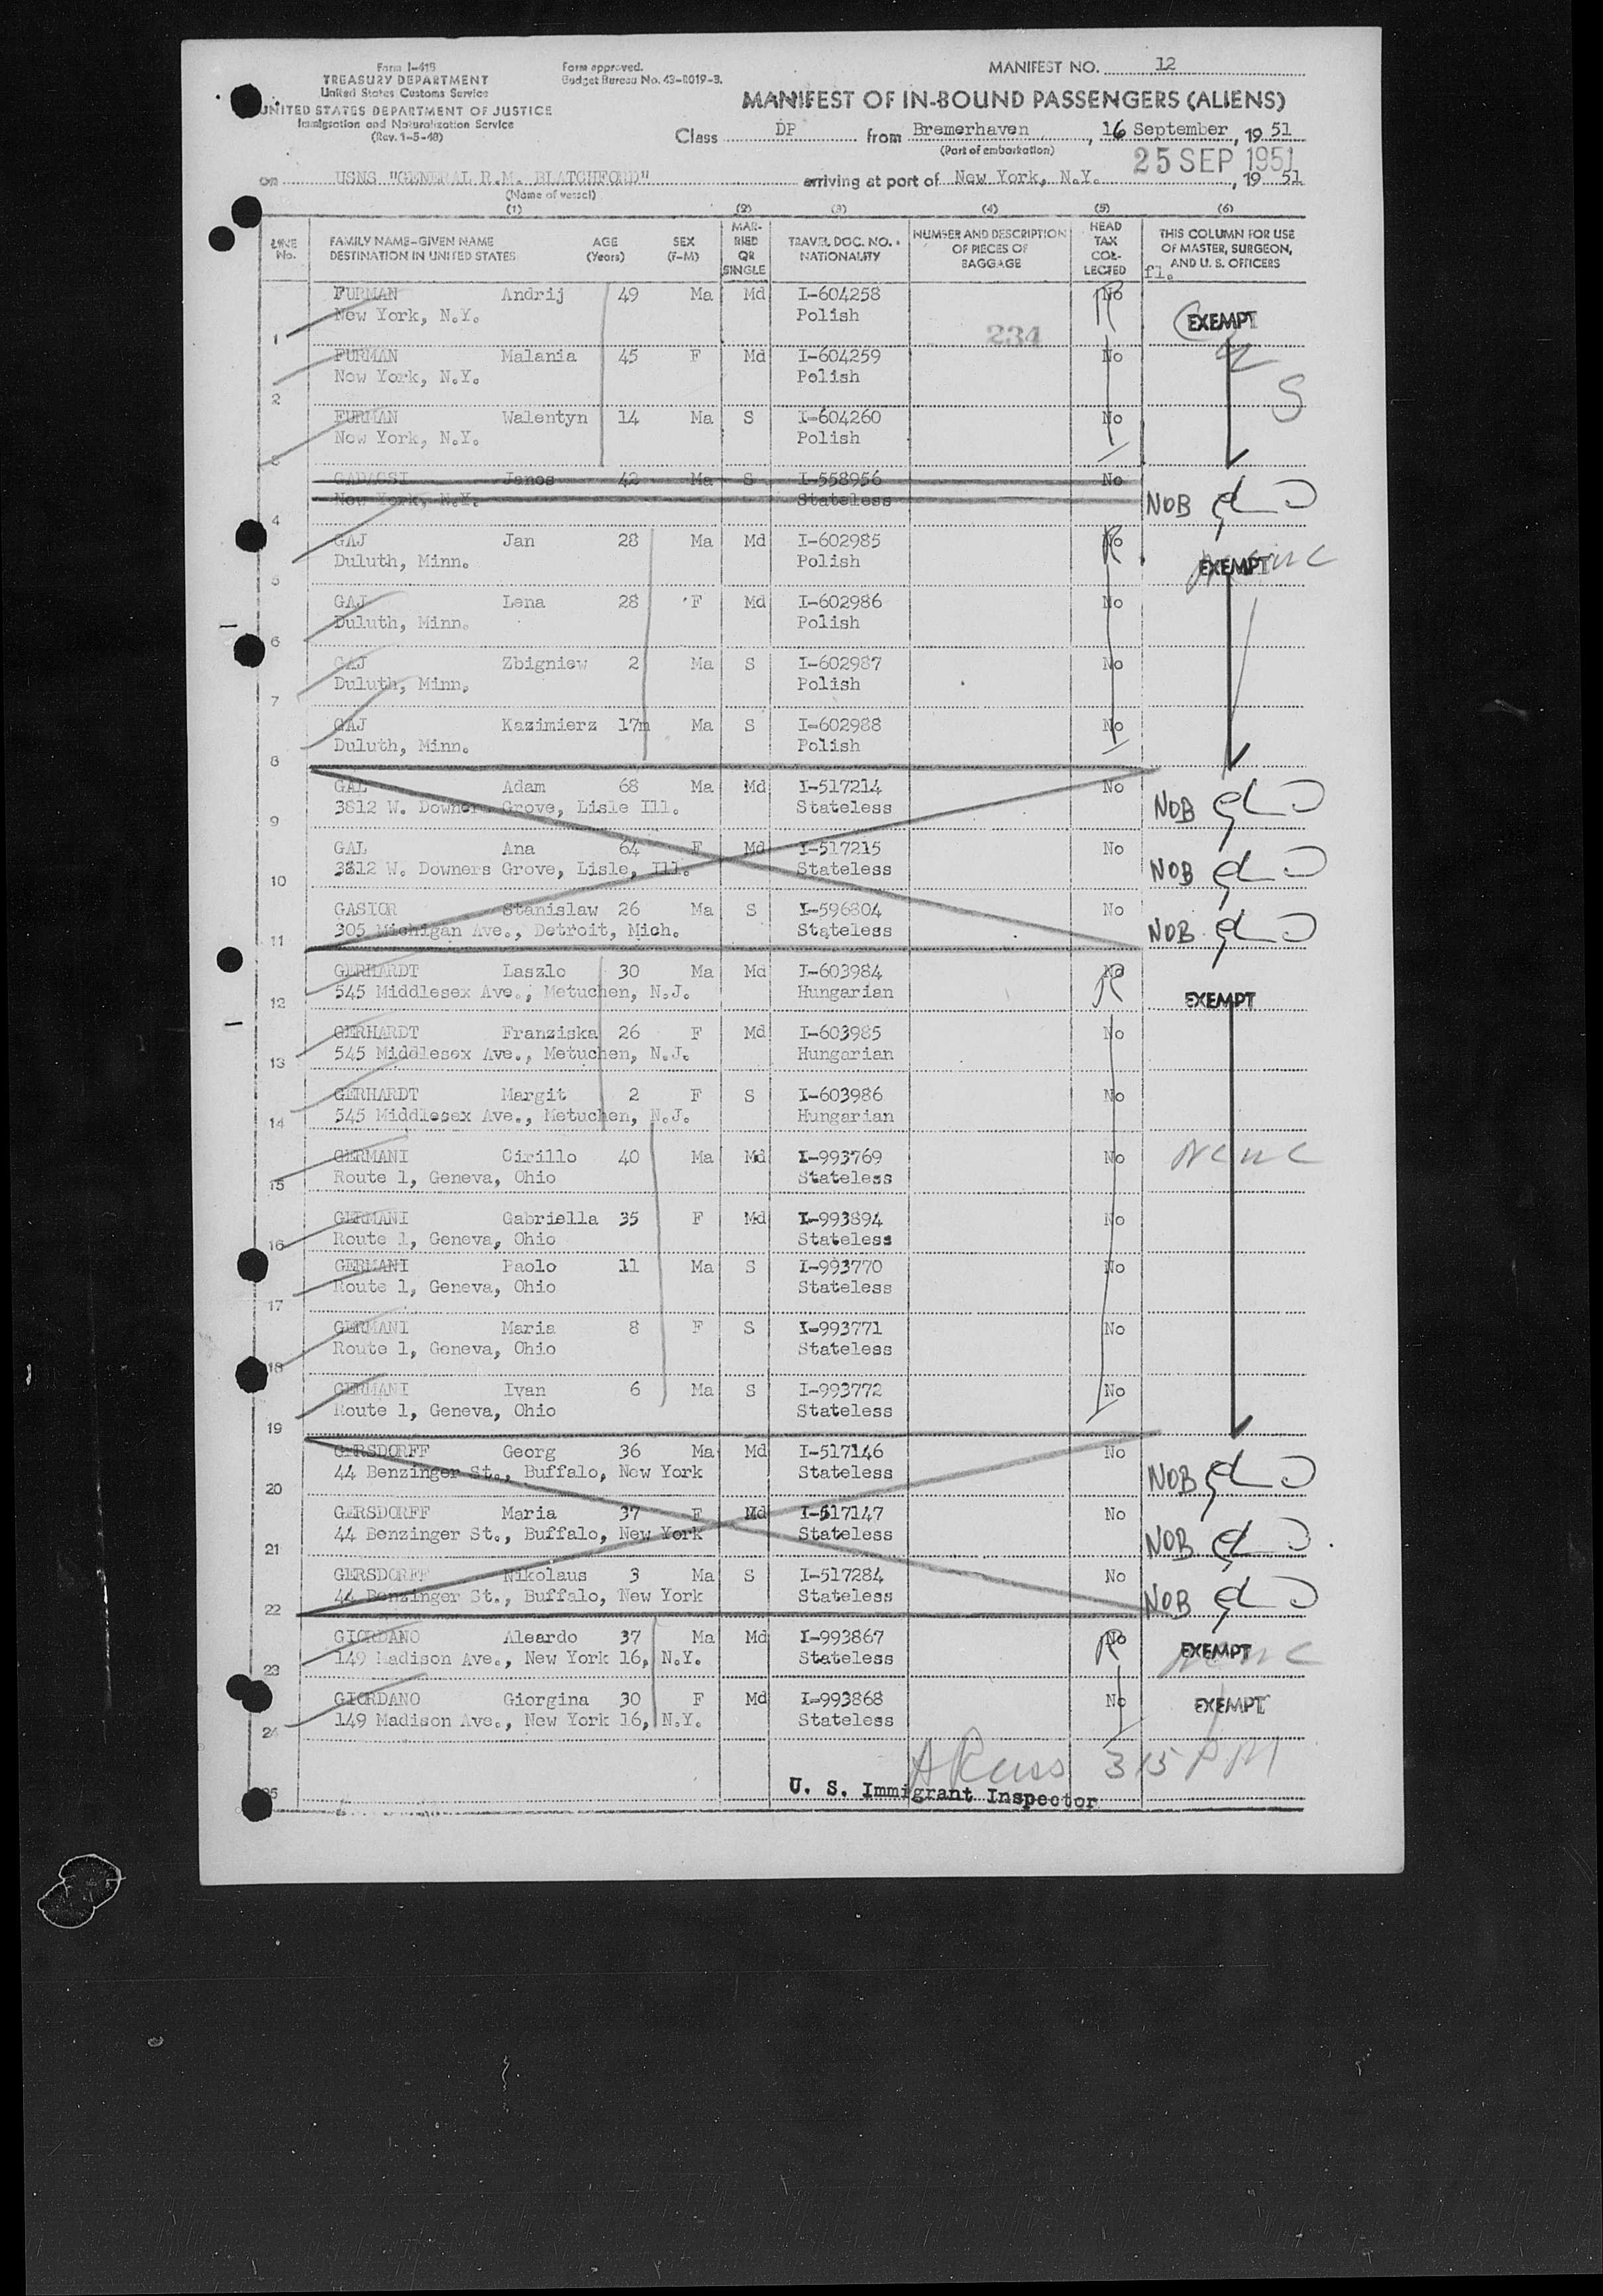 Form I-418
TREASURY DEPARTMENT
United States Customs Service
UNITED STATES DEPARTMENT OF JUSTICE
Immigration and Naturalization Service
(Rev. 1-5-48)
Form approved.
Budget Bureau No. 43-R019-3.
MANIFEST NO. 12
MANIFEST OF IN-BOUND PASSENGERS (ALIENS)
Class DP from Bremerhaven, 16 September, 19 51
(Port of embarkation)
25 SEP 1951
on USNS "GENERAL R.M. BLATCHFORD" arriving at port of New York, N.Y. , 19 51
(Name of vessel)
(1) (2) (3) (4) (5) (6)
LINE No. FAMILY NAME–GIVEN NAME DESTINATION IN UNITED STATES AGE (Years) SEX (F-M) MARRIED OR SINGLE TRAVEL DOC. NO. NATIONALITY NUMBER AND DESCRIPTION OF PIECES OF BAGGAGE HEAD TAX COLLECTED THIS COLUMN FOR USE OF MASTER, SURGEON, AND U. S. OFFICERS
fl.
FURMAN Andrij 49 Ma Md I-604258 No
1 New York, N.Y. Polish 234 R EXEMPT
FURMAN Malania 45 F Md I-604259 No
2 New York, N.Y. Polish S
FURMAN Walentyn 14 Ma S I-604260 No
3 New York, N.Y. Polish
GADACSI Janos 42 Ma S I-558956 No
4 New York, N.Y. Stateless NOB
GAJ Jan 28 Ma Md I-602985 No
5 Duluth, Minn. Polish R EXEMPT
GAJ Lena 28 F Md I-602986 No
6 Duluth, Minn. Polish
GAJ Zbigniew 2 Ma S I-602987 No
7 Duluth, Minn. Polish
GAJ Kazimierz 17m Ma S I-602988 No
8 Duluth, Minn. Polish
GAL Adam 68 Ma Md I-517214 No
9 3812 W. Downers Grove, Lisle Ill. Stateless NOB
GAL Ana 64 F Md I-517215 No
10 3812 W. Downers Grove, Lisle, Ill. Stateless NOB
GASIOR Stanislaw 26 Ma S I-596804 No
11 305 Michigan Ave., Detroit, Mich. Stateless NOB
GERHARDT Laszlo 30 Ma Md I-603984 No
12 545 Middlesex Ave., Metuchen, N.J. Hungarian R EXEMPT
GERHARDT Franziska 26 F Md I-603985 No
13 545 Middlesex Ave., Metuchen, N.J. Hungarian
GERHARDT Margit 2 F S I-603986 No
14 545 Middlesex Ave., Metuchen, N.J. Hungarian
GERMANI Cirillo 40 Ma Md I-993769 No
15 Route 1, Geneva, Ohio Stateless
GERMANI Gabriella 35 F Md I-993894 No
16 Route 1, Geneva, Ohio Stateless
GERMANI Paolo 11 Ma S I-993770 No
17 Route 1, Geneva, Ohio Stateless
GERMANI Maria 8 F S I-993771 No
18 Route 1, Geneva, Ohio Stateless
GERMANI Ivan 6 Ma S I-993772 No
19 Route 1, Geneva, Ohio Stateless
GERSDORFF Georg 36 Ma Md I-517146 No
20 44 Benzinger St., Buffalo, New York Stateless NOB
GERSDORFF Maria 37 F Md I-517147 No
21 44 Benzinger St., Buffalo, New York Stateless NOB
GERSDORFF Nikolaus 3 Ma S I-517284 No
22 44 Benzinger St., Buffalo, New York Stateless NOB
GIORDANO Aleardo 37 Ma Md I-993867 No
23 149 Madison Ave., New York 16, N.Y. Stateless R EXEMPT
GIORDANO Giorgina 30 F Md I-993868 No
24 149 Madison Ave., New York 16, N.Y. Stateless EXEMPT
315 PM
25 U. S. Immigrant Inspector